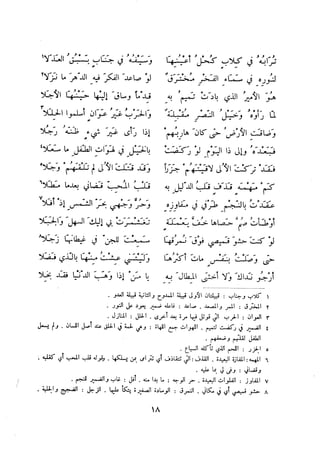 تُرَابُهُ في كِلابٍ كُحْلُ أعْيُنِهَا وَسَيْفُهُ في جَنَابٍ يَسْبِقُ العَذَلا¹
لِنُورِهِ في سَمَاءِ الفَخْرِ مُخْتَرَقٌ لوْ صاعدَ الفكرَ فيهِ الدهرَ ما نَزَلا²
هُوَ الأميرُ الذي بادَتْ تَميمُ بهِ قِدْماً وساقَ إلَيْها حَيْنُهَا الأجَلا
لمّا رَأوْهُ وَخَيْلُ النّصْرِ مُقْبِلَةٌ والحَرْبُ غَيرُ عَوَانٍ أسلَمُوا الحِلَلا³
وَضاقَتِ الأرْضُ حتى كانَ هارِبُهُمْ إذا رَأى غَيرَ شيءٍ ظَنّهُ رَجُلا
فَبَعْدَهُ وإلى ذا اليَوْمِ لَوْ رَكَضَتْ بالخَيْلِ في لَهَوَاتِ الطّفلِ ما سَعَلا⁴
فَقَدْ تركْتَ الأُلى لاقَيْتَهُمْ جَزَراً وقَد قَتَلتَ الأُلى لم تَلْقَهُمْ وَجَلا⁵
كَمْ مَهْمَهٍ قَذَفٍ قَلبُ الدّليلِ بِهِ قَلْبُ المُحِبّ قَضاني بعدَما مَطَلا⁶
عَقَدْتُ بالنّجْمِ طَرْفي في مَفاوِزِهِ وَحُرَّ وَجْهي بحَرّ الشّمسِ إذْ أفَلا⁷
أوْطَأتُ صُمَّ حَصاها خُفَّ يَعْمَلَةٍ تَغَشْمَرَتْ بي إليكَ السهلَ وَالجَبَلا
لوْ كنتَ حشوَ قَميصي فوْقَ نُمرُقِها سَمِعْتَ للجنّ في غيطانِهَا زَجَلا⁸
حتى وَصَلْتُ بنَفْسٍ ماتَ أكثرُها وليْتَني عِشْتُ مِنْها بالّذي فَضَلا
أرْجُو نَداكَ وَلا أخْشَى المِطالَ بهِ يا مَنْ إذا وَهَبَ الدّنْيا فقَد بخِلا
١ كلاب وجناب : قبيلتان الأولى قبيلة الممدوح والثانية قبيلة العدو .
٢ المخترق : الممر والمصعد . صاعد : فاعله ضمير يعود على النور .
٣ العوان : الحرب التي قوتل فيها مرة بعد أخرى . الحلل : المنازل .
٤ الضمير في ركضت لتميم . اللهوات جمع اللهاة : وهي لحمة في الحلق عند أصل اللسان . ولم يسعل
الطفل لقلتهم وضعفهم .
٥ الجزر : اللحم الذي تأكله السباع .
٦ المهمه : المفازة البعيدة . القذف : التي تتقاذف أي تترامى بمن يسلكها . يقوله قلب المحب أي كقلبه .
وقضاني : وفى لي بما عليه .
٧ المفاوز : الفلوات البعيدة . حر الوجه : ما بدا منه . أفل : غاب والضمير للنجم .
٨ حشو قميصي أي في مكاني . النمرق : الوسادة الصغيرة يتكأ عليها . الزجل : الضجيج والجلبة .
١٨